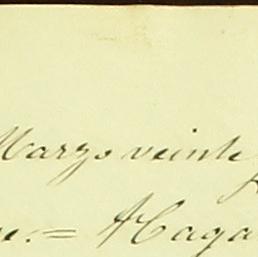 Marzo veinte
e.= Haga